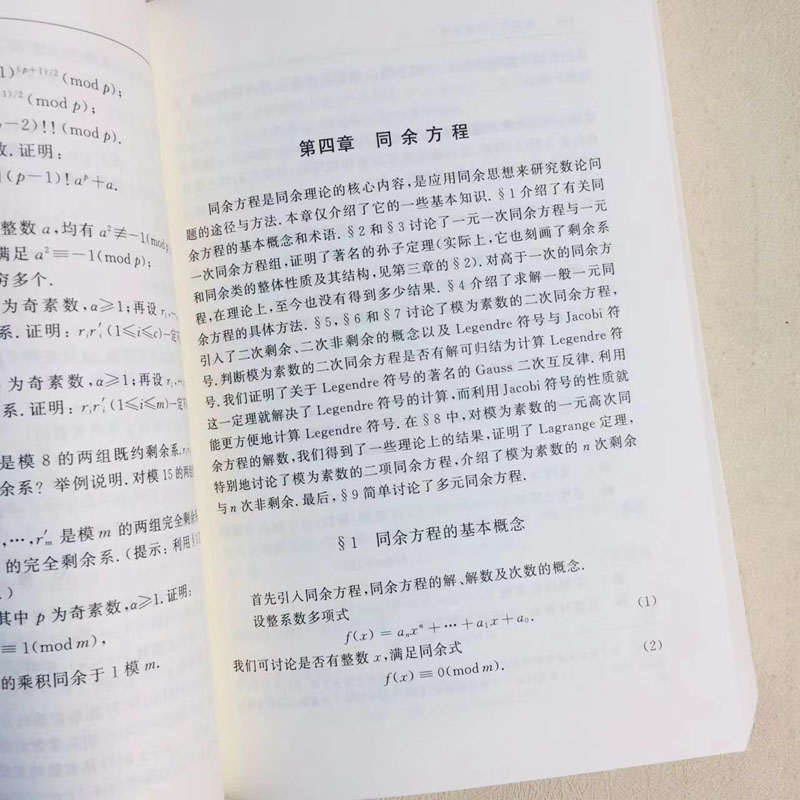 1)^{(p+1)/2}(mod p);
^{1)/2}(mod p);
p−2)!!(mod p).
数.证明:
(p−1)!a^p+a.
整数a,均有a²≢−1(mod p)
满足a²≡−1(mod p);
穷多个.
为奇素数,α≥1;再设r₁,…,
系.证明:r_i r′_i(1≤i≤c)一定
为奇素数,α≥1;再设r₁,…,
系.证明:r_i r′_i(1≤i≤m)一定
是模8的两组既约剩余系.
余系?举例说明.对模15的两组
,…,r′_m是模m的两组完全剩余
的完全剩余系.(提示:利用
.)
其中p为奇素数,α≥1.证明:
≡1(mod m),
的乘积同余于1模m.
第四章 同余方程
同余方程是同余理论的核心内容,是应用同余思想来研究数论问
题的途径与方法.本章仅介绍了它的一些基本知识.§1介绍了有关同
余方程的基本概念和术语.§2和§3讨论了一元一次同余方程与一元
一次同余方程组,证明了著名的孙子定理(实际上,它也刻画了剩余系
和同余类的整体性质及其结构,见第三章的§2).对高于一次的同余方
程,在理论上,至今也没有得到多少结果.§4介绍了求解一般一元同
余方程的具体方法.§5,§6和§7讨论了模为素数的二次同余方程,
引入了二次剩余、二次非剩余的概念以及Legendre符号与Jacobi符
号.判断模为素数的二次同余方程是否有解可归结为计算Legendre符
号.我们证明了关于Legendre符号的著名的Gauss二次互反律.利用
这一定理就解决了Legendre符号的计算,而利用Jacobi符号的性质就
能更方便地计算Legendre符号.在§8中,对模为素数的一元高次同
余方程的解数,我们得到了一些理论上的结果,证明了Lagrange定理,
特别地讨论了模为素数的二项同余方程,介绍了模为素数的n次剩余
与n次非剩余.最后,§9简单讨论了多元同余方程.
§1 同余方程的基本概念
首先引入同余方程,同余方程的解、解数及次数的概念.
设整系数多项式
f(x)=a_n x^n+…+a₁x+a₀. (1)
我们可讨论是否有整数x,满足同余式
f(x)≡0(mod m). (2)